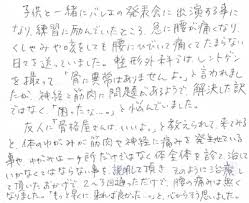 子供と一緒にバレエの発表会に出演する事に
なり、練習に励んでいたところ、急に腰が痛くなり
くしゃみや咳をしても腰にひびいて痛くてたまらない
日々を送っていました。整形外科では、レントゲン
を撮って「骨に異常はありませんよ。」と言われまし
たが、神経と筋肉に問題があるようで、解決した訳
ではなく「困ったな…。」と悩んでいました。
友人に「骨格屋さんは、いいよ。」と教えられ、来てみる
と、体のゆがみが筋肉や神経に痛みを発生させている
事や、ゆがみは一ヶ所だけではなく体全体を診て治して
いかなくてはならない事を説明して頂き、そのように治療し
て頂いたおかげで、2〜3回通っただけで、腰の痛みは無く
なりました。「もっと早くに来れば良かった…。」と、心からそう思いました。